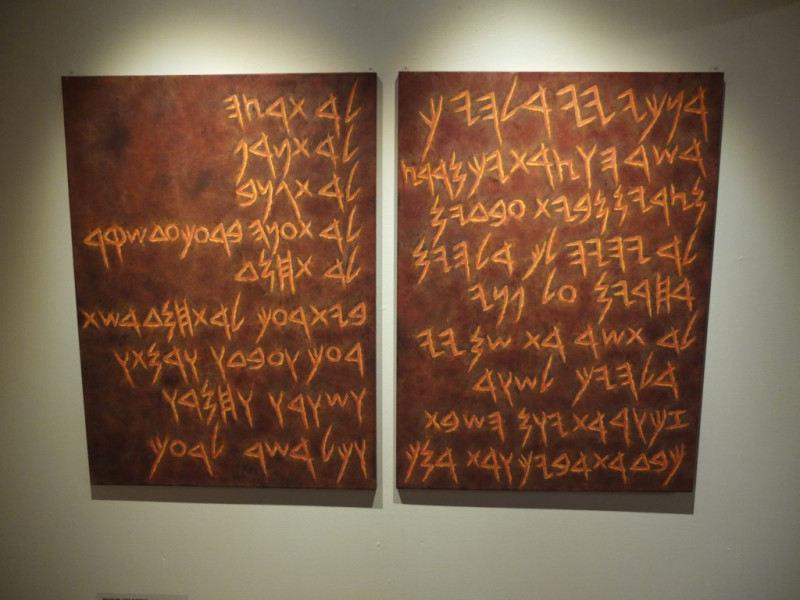 𐤀𐤍𐤊𐤉 𐤉𐤉 𐤀𐤋𐤄𐤉𐤊
𐤀𐤔𐤓 𐤄𐤅𐤑𐤀𐤕𐤉𐤊 𐤌𐤀𐤓𐤑
𐤌𐤑𐤓𐤉𐤌 𐤌𐤁𐤉𐤕 𐤏𐤁𐤃𐤉𐤌
𐤋𐤀 𐤉𐤄𐤉𐤄 𐤋𐤊 𐤀𐤋𐤄𐤉𐤌
𐤀𐤇𐤓𐤉𐤌 𐤏𐤋 𐤐𐤍𐤉
𐤋𐤀 𐤕𐤔𐤀 𐤀𐤕 𐤔𐤌 𐤉𐤉
𐤀𐤋𐤄𐤉𐤊 𐤋𐤔𐤅𐤀
𐤆𐤊𐤅𐤓 𐤀𐤕 𐤉𐤅𐤌 𐤄𐤔𐤁𐤕
𐤊𐤁𐤃 𐤀𐤕 𐤀𐤁𐤉𐤊 𐤅𐤀𐤕 𐤀𐤌𐤊
𐤋𐤀 𐤕𐤓𐤑𐤄
𐤋𐤀 𐤕𐤍𐤀𐤐
𐤋𐤀 𐤕𐤂𐤍𐤁
𐤋𐤀 𐤕𐤏𐤍𐤄 𐤁𐤓𐤏𐤊 𐤏𐤃 𐤔𐤒𐤓
𐤋𐤀 𐤕𐤇𐤌𐤃
𐤁𐤉𐤕 𐤓𐤏𐤊 𐤋𐤀 𐤕𐤇𐤌𐤃 𐤀𐤔𐤕
𐤓𐤏𐤊 𐤅𐤏𐤁𐤃𐤅 𐤅𐤀𐤌𐤕𐤅
𐤅𐤔𐤅𐤓𐤅 𐤅𐤇𐤌𐤓𐤅
𐤅𐤊𐤋 𐤀𐤔𐤓 𐤋𐤓𐤏𐤊